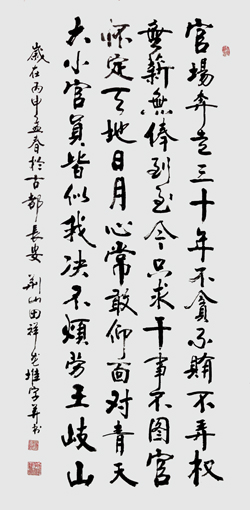 官場奔走三十年不貪不賄不弄权
無薪無俸到至今只求干事不图官
怀定天地日月心常敢仰面对青天
大小官員皆似我决不煩劳王岐山
歲在丙申孟春於古都長安 荆山田祥堆字并书